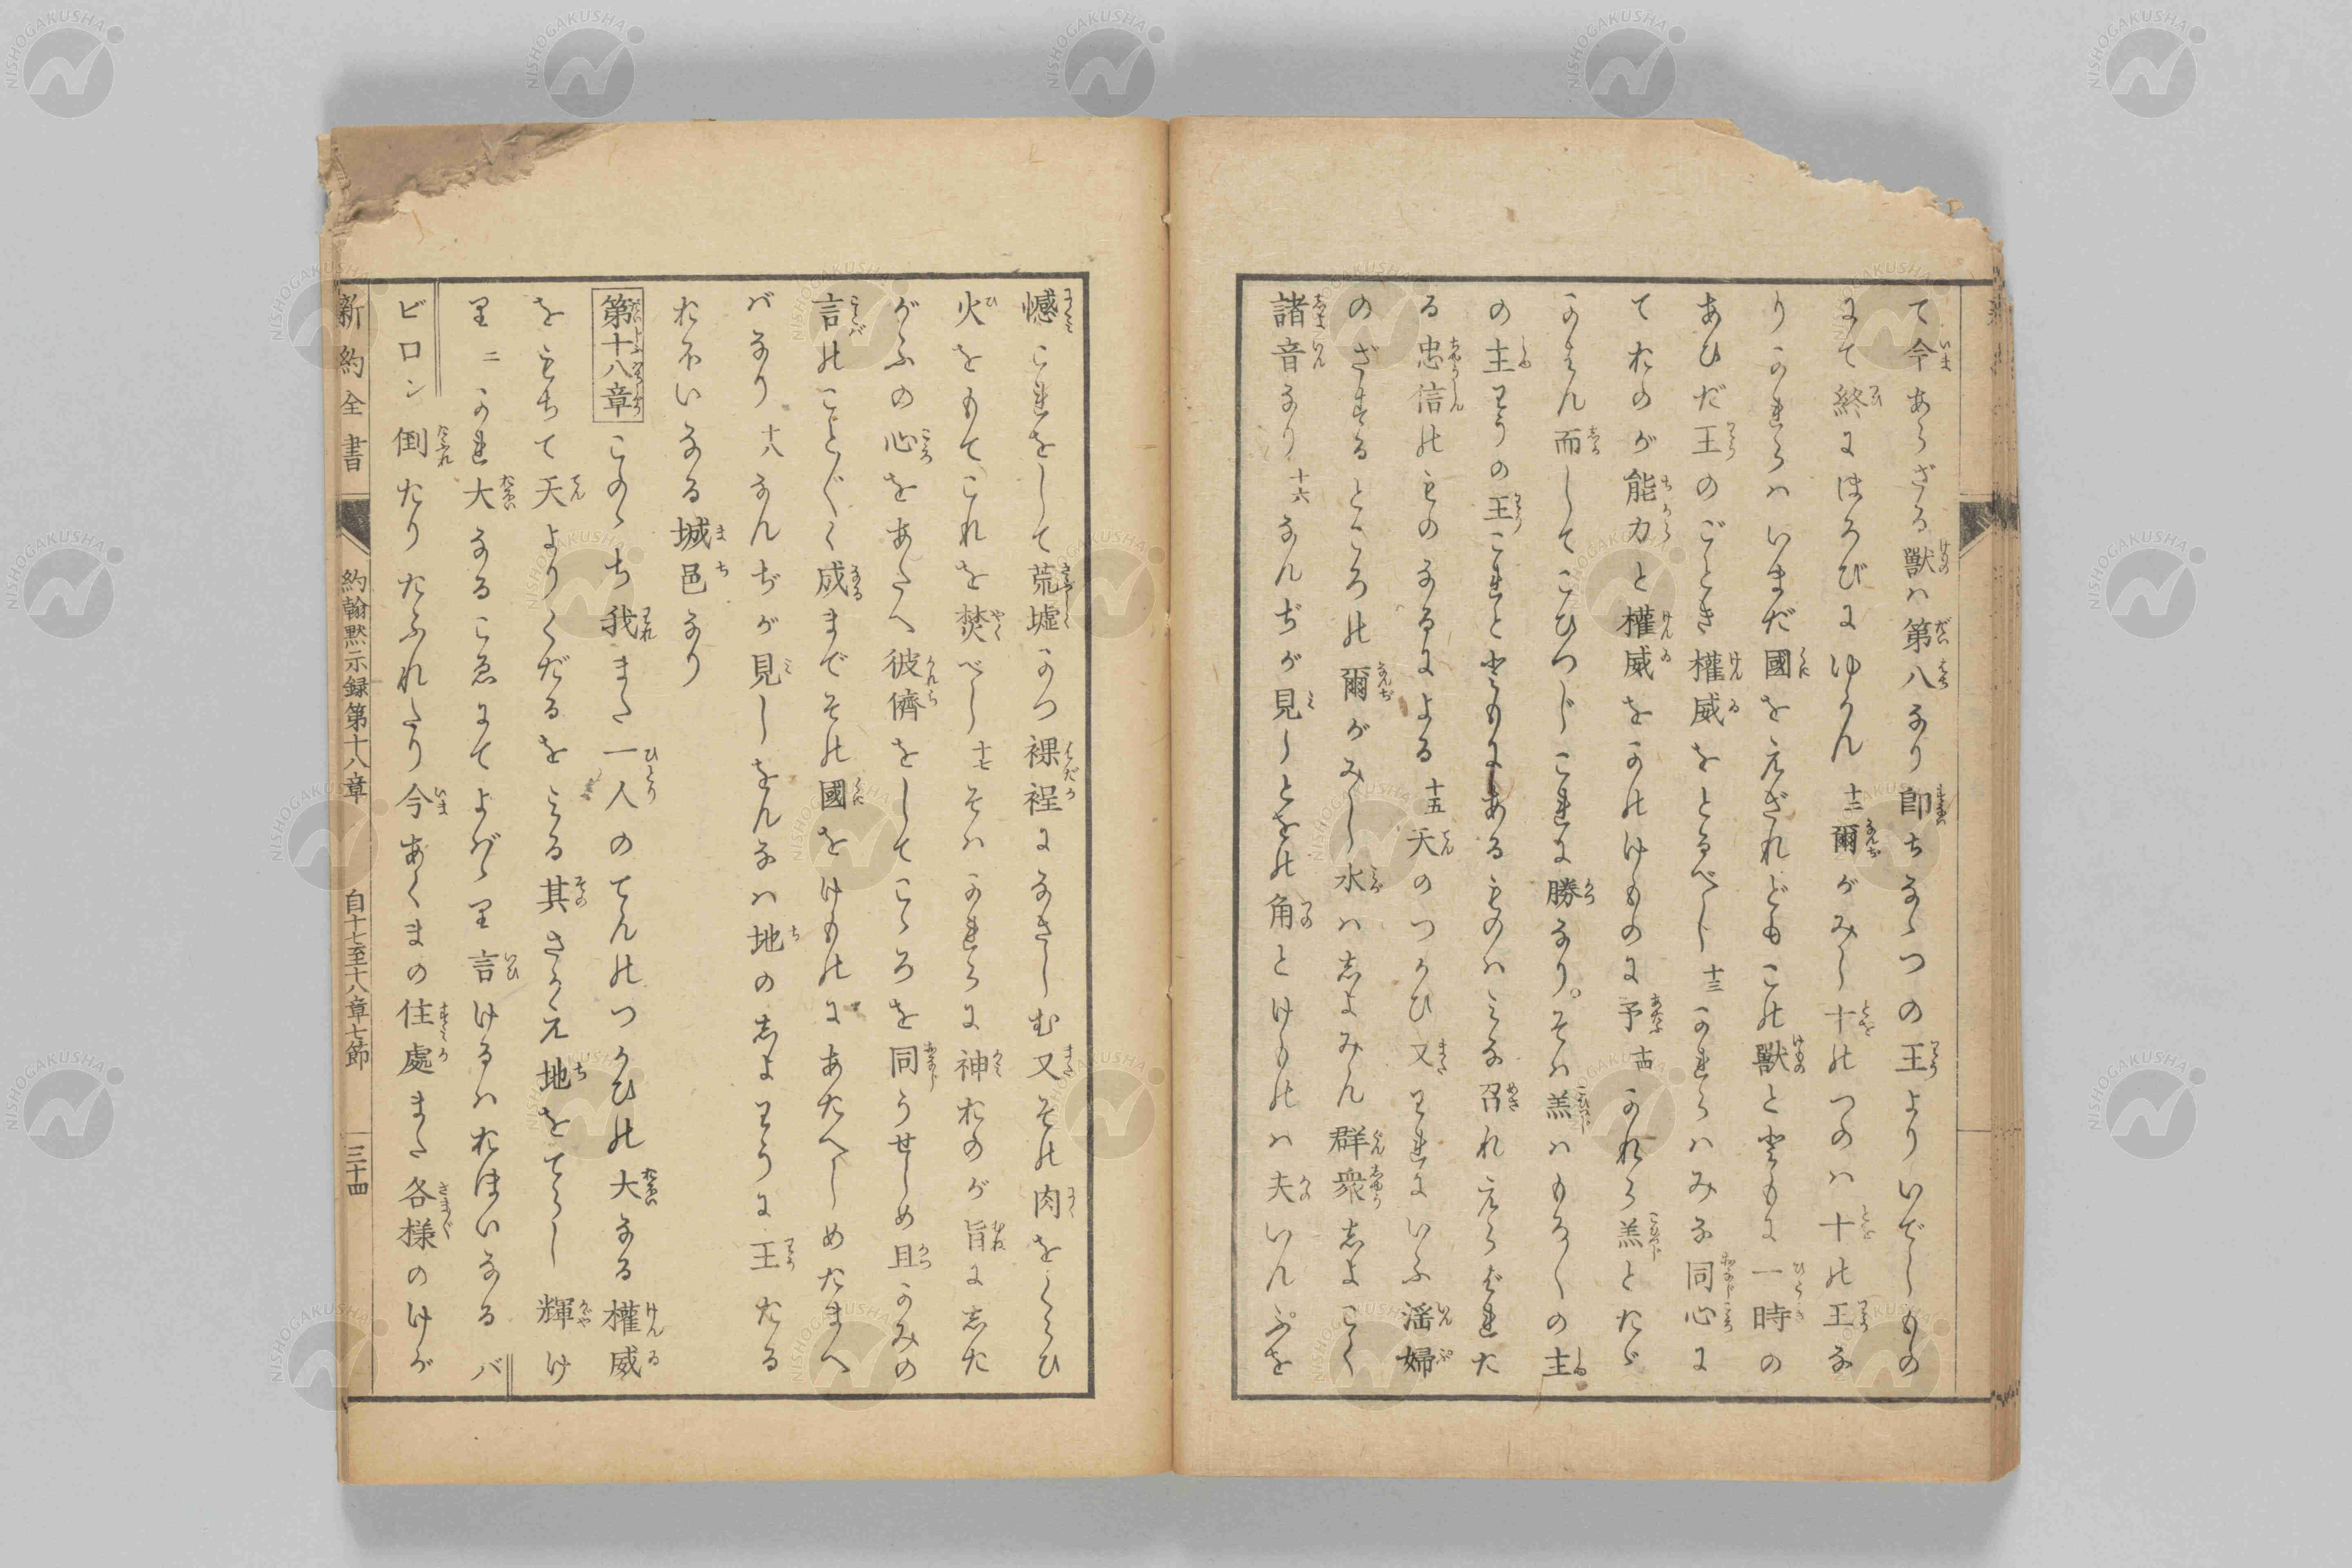 て今あらざる獸ハ第八なり即ちなゝつの王よりいでしもの
にて終にほろびにゆかん 十二 爾がみし十のつのハ十の王な
りかれらハいまだ國をえざれどもこの獸とともに一時の
あひだ王のごとき權威をとるべし 十三 かれらハみな同心に
ておのが能力と權威をかのけものに予 十四 かれら羔とたゝ
かはん而してこひつじこれに勝なり。そハ羔ハもろ〳〵の主
の主わうの王これとともにあるものハみな召れえらばれた
る忠信のものなるによる 十五 天のつかひ又われにいふ滛婦
のざするところの爾がみし水ハ志よみん群衆志よこく
諸音なり 十六 なんぢが見しとをの角とけものハ夫いんぷを
憾これをして荒墟かつ裸裎になさしむ又その肉をくらひ
火をもてこれを焚べし 十七 そハかれらに神おのが旨に志た
がふの心をあたへ彼儕をしてこゝろを同うせしめ且かみの
言のこと〴〵く成までその國をけものにあたへしめたまへ
バなり 十八 なんぢが見しをんなハ地の志よわうに王たる
おほいなる城邑なり
第十八章 このゝち我また一人のてんのつかひの大なる權威
をもちて天よりくだるをみる其さかえ地をてらし輝け
り 二 かれ大なるこゑにてよばゝり言けるハおほいなるバ
ビロン倒たりたふれたり今あくまの住處また各様のけが
新約全書 約翰黙示録第十八章 自十七至十八章七節 三十四
NISHOGAKUSHA